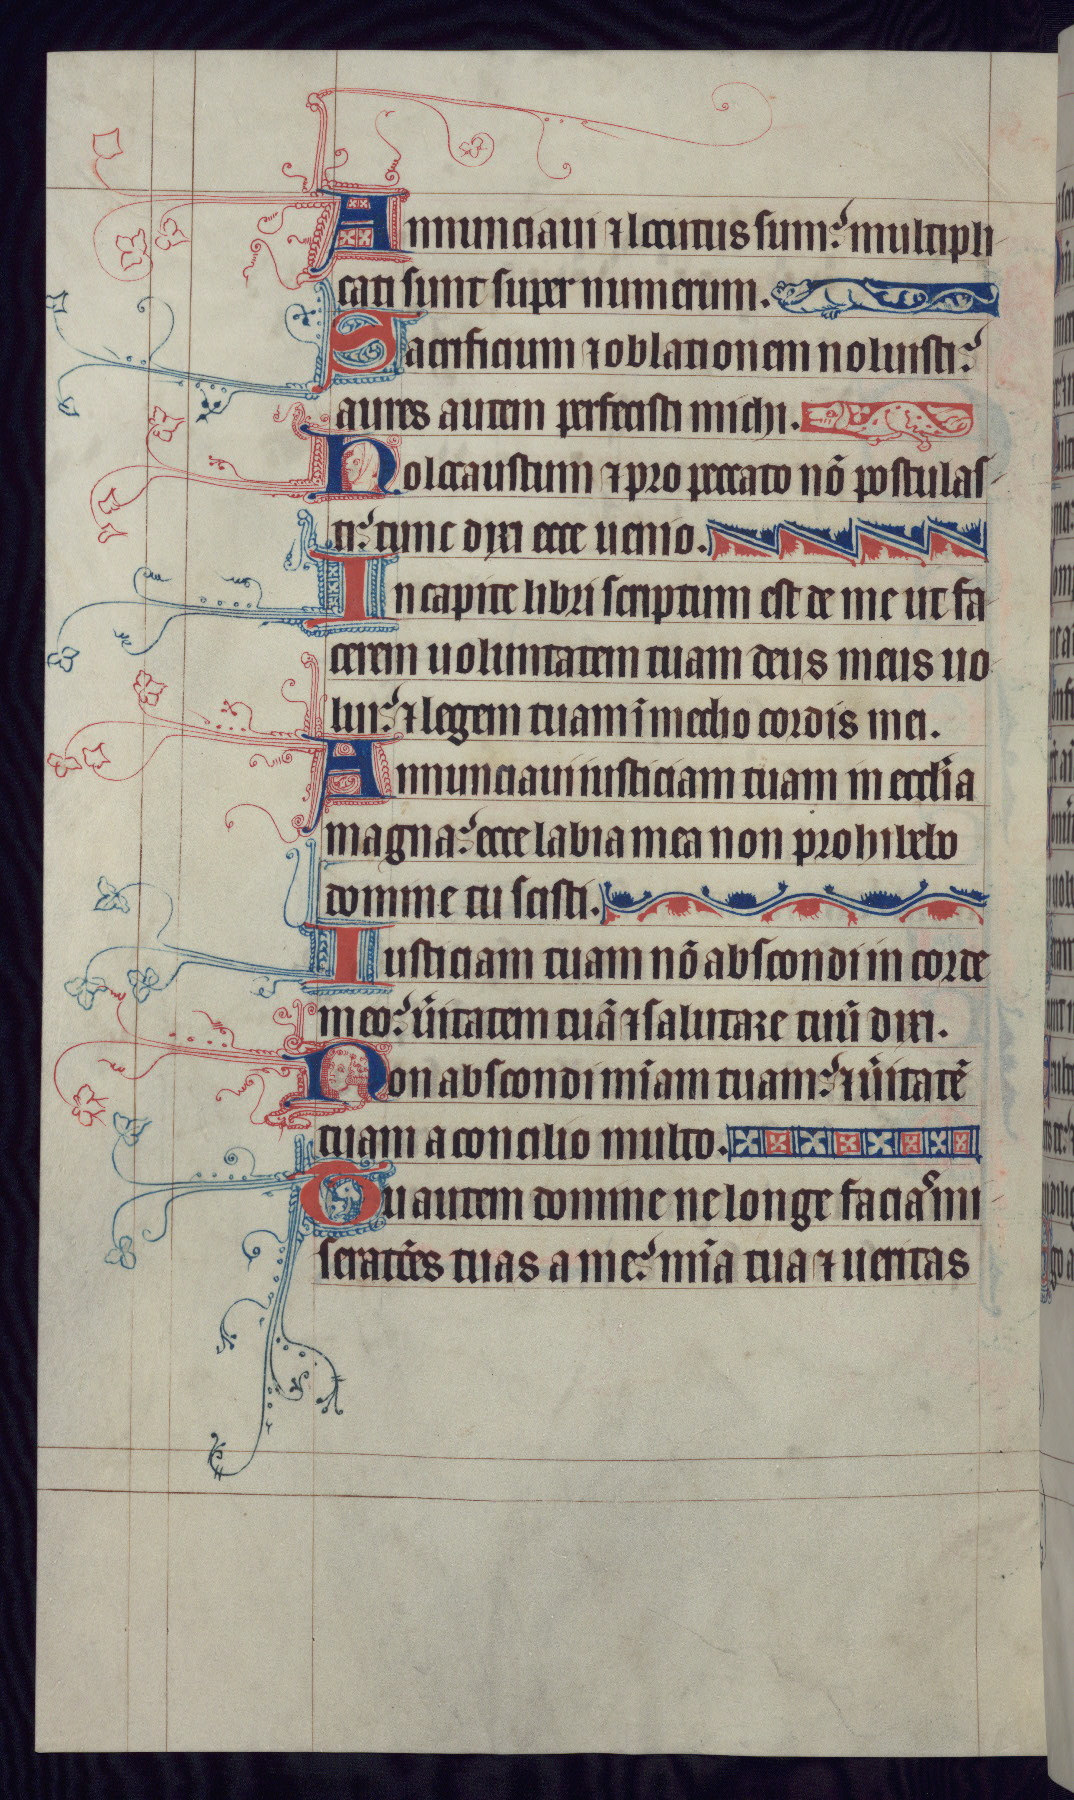 Annunciaui ⁊ locutus sum: multipli
cati sunt super numerum.
Sacrificium ⁊ oblationem noluisti:
aures autem perfecisti michi.
Holocaustum ⁊ pro peccato nō postulas
ti: tunc dixi ecce uenio.
In capite libri scriptum est de me ut fa
cerem uoluntatem tuam deus meus uo
lui: ⁊ legem tuam ī medio cordis mei.
Annunciaui iusticiam tuam in eccľia
magna: ecce labia mea non prohibebo
domine tu scisti.
Iusticiam tuam nō abscondi in corde
meo: ūitatem tuā ⁊ salutare tuū dixi.
Non abscondi mīam tuam: ⁊ ūitatē
tuam a concilio multo.
Tu autem domine ne longe facias mi
seratōes tuas a me: mīa tua ⁊ ueritas